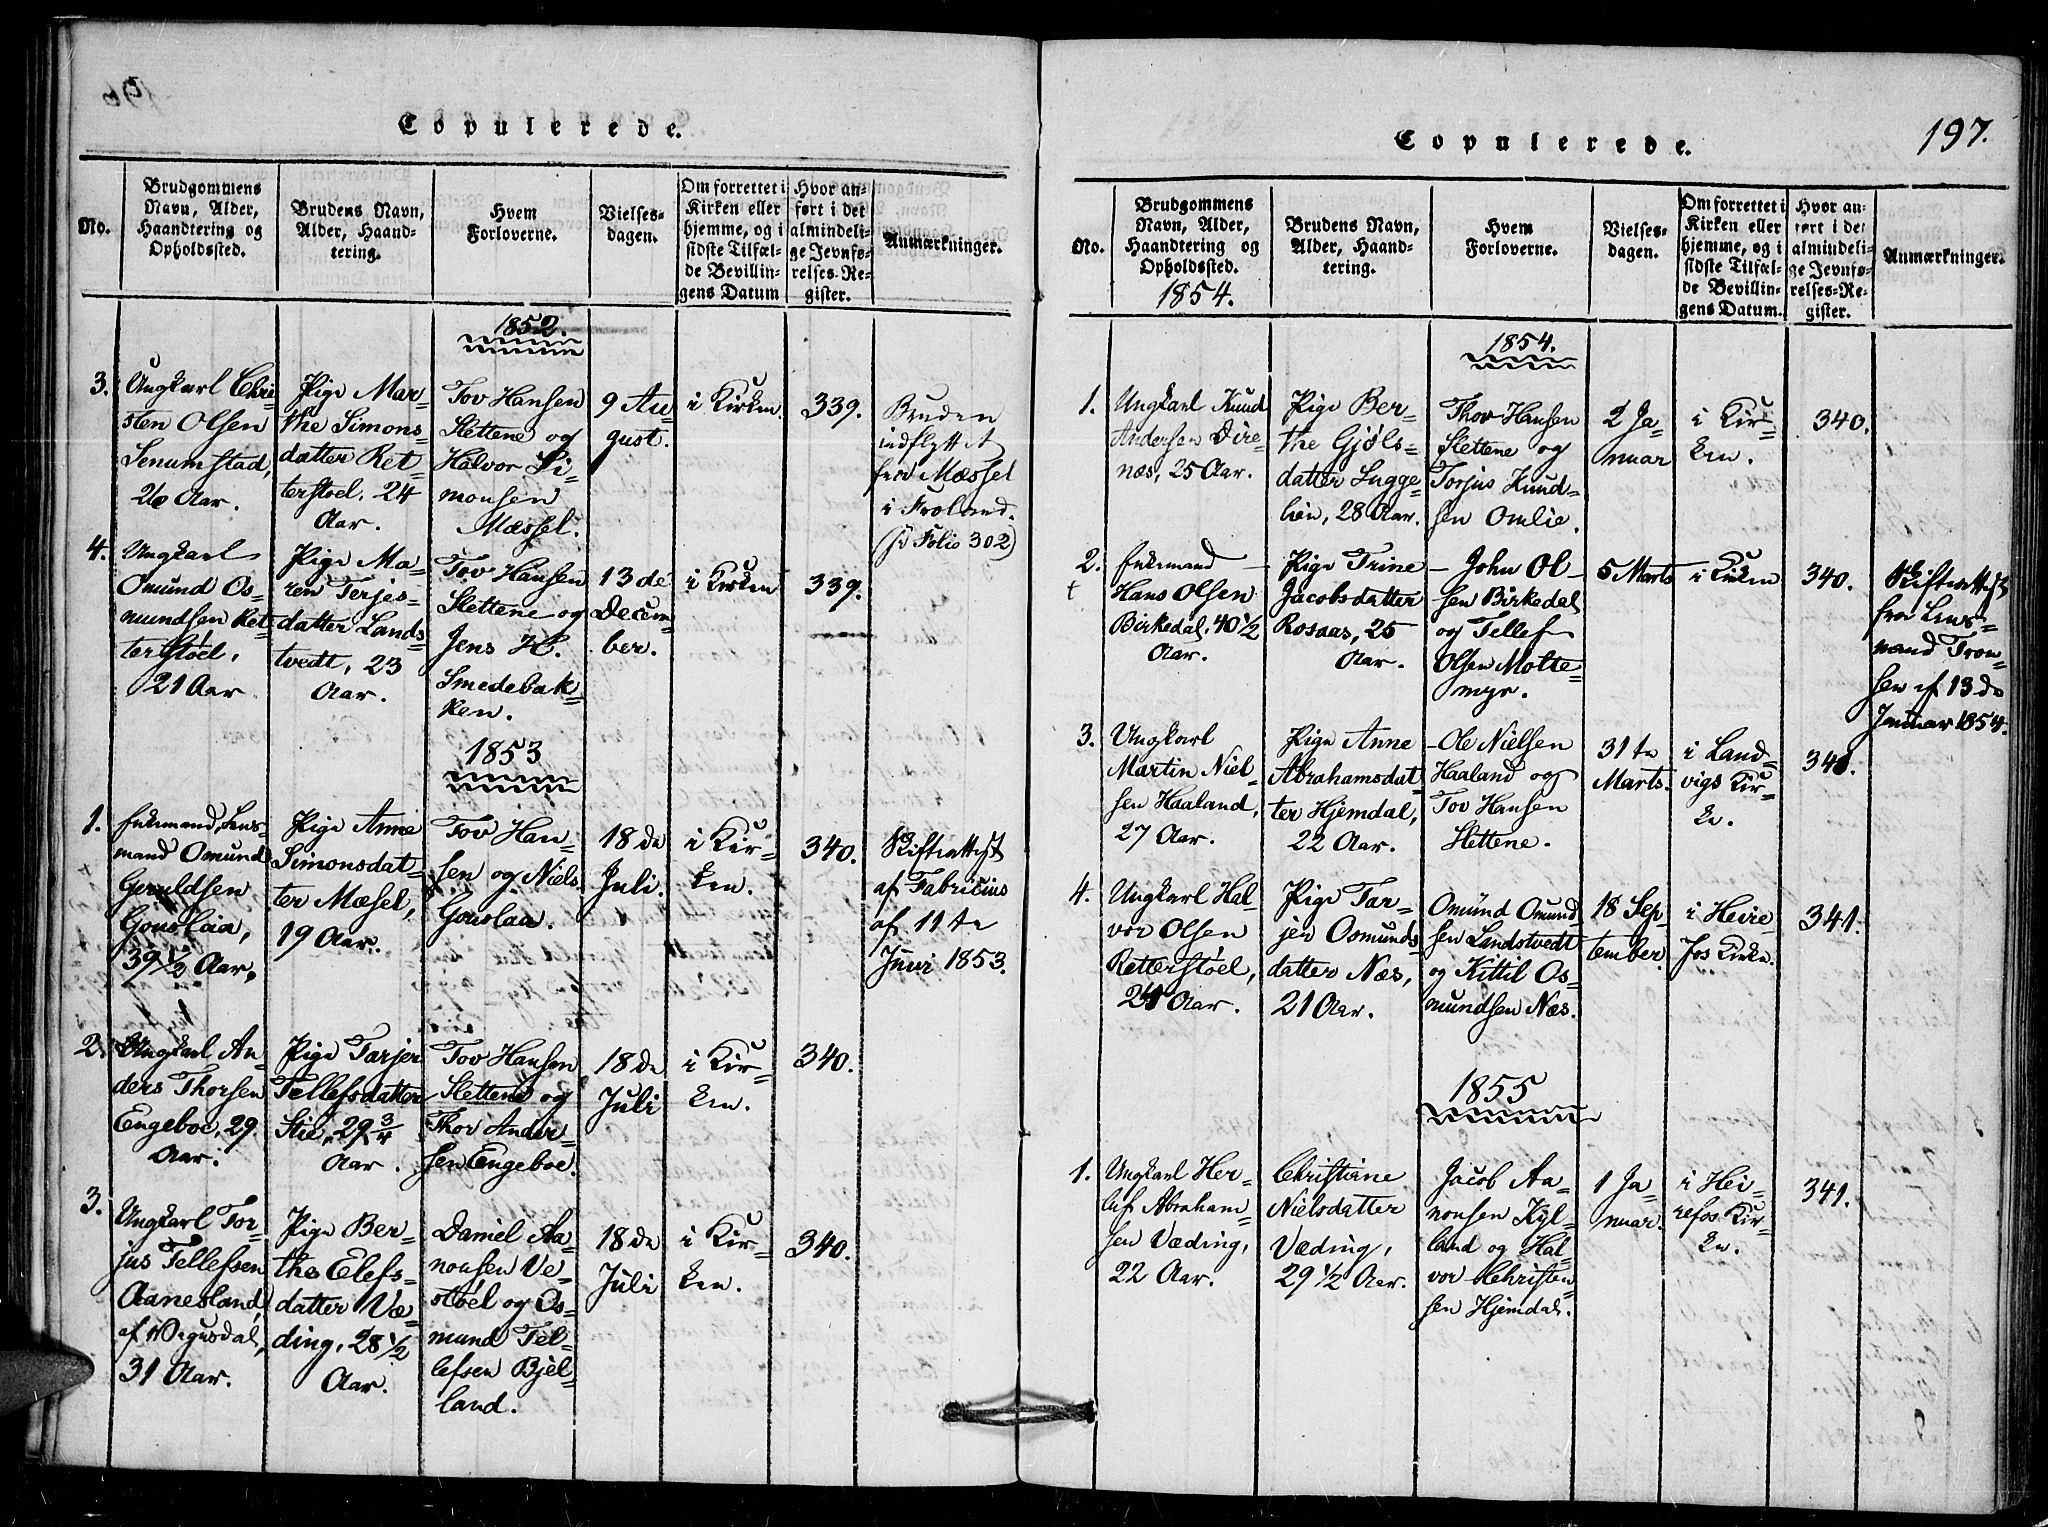 Copulerede.
No.
Brudgommens
Navn, Alder,
Haandtering og
Opholdssted.
Brudens Navn,
Alder, Haand-
tering.
Hvem
Forloverne.
Vielses-
dagen.
Om forrettet i
Kirken eller
hjemme, og i
sidste Tilfæl-
de Bevillin-
gens Datum
Hvor an-
ført i det
almindeli-
ge Jevnfø-
relses-Re-
gister.
Anmærkninger.
1852.
3.
Ungkarl Chri-
sten Olsen
Senumstad,
26 Aar.
Pige Mar-
the Simons-
datter Ret-
terstoel, 24
Aar.
Tov Hansen
Slettene og
Halvor Si-
monsen
Mæssel.
9 Au-
gust.
i Kirken.
339.
Bruden
indflyttet
fra Mæssel
i Froland.
Folio 302)
4.
Ungkarl
Omund Os-
mundsen Ret-
terstøel,
21 Aar
Pige Ma-
ren Terjes-
datter Lands-
tvedt, 23
Aar.
Tov Hansen
Slettene og
Jens H.
Smedebak-
ken.
13 de
Decem-
ber.
i Kirken
339.
1853
1.
Enkemand, Lens-
mand Omund
Geruldsen
Gouslaa,
39 1/2 Aar.
Pige Anne
Simonsdat-
ter Mæsel,
19 Aar.
Tov Han-
sen og Niels
Gouslaa.
18 de
Juli.
i Kir-
ken.
340.
Skifteattest
af Fabricius
af 11 te
Juni 1853.
2.
Ungkarl An-
ders Thorsen
Engeboe, 29
Aar.
Pige Tarjer
Tellefsdatter
Stie, 29 3/4
Aar.
Tov Hansen
Slettene og
Thor Ander-
sen Engeboe.
18 de
Juli
i Kir-
ken.
340.
3.
Ungkarl Tor-
jus Tellefsen
Aanesland,
af Vegusdal,
31 Aar.
Pige Ber-
the Elefs-
datter Væ-
ding, 28 1/2
Aar.
Daniel Aa-
nonsen Ve-
støel og Os-
mund Tel-
lefsen Bjel-
land.
18 de
Juli
i Kir-
ken.
340.
197.
Copulerede.
No.
Brudgommens
Navn, Alder,
Haandtering og
Opholdssted.
1854.
Brudens Navn,
Alder, Haand-
tering.
Hvem
Forloverne.
Vielses-
dagen.
Om forrettet i
Kirken eller
hjemme, og i
sidste Tilfæl-
de Bevillin-
gens Datum.
Hvor an-
ført i det
almindeli-
ge Jevnfø-
relses-Re-
gister.
Anmærkninger.
1854.
1.
Ungkarl Knud
Andersen Dire-
næs, 25 Aar.
Pige Ber-
the Gjøls-
datter Lugge-
lien, 28 Aar.
Thov Hansen
Slettene og
Torjus Knud-
sen Omlie.
2 Ja-
nuar
i Kir-
ken.
340.
2.
Enkemand
Hans Olsen
Birkedal, 40 1/2
Aar.
Pige Trine
Jacobsdatter
Rosaas, 25
Aar.
John Ol-
sen Birkedal
og Tellef
Olsen Molte-
myr.
5 Marts
i Kirken
340.
Skifteattest
fra Lens-
mand Tron-
sen af 13 de
Januar 1854.
3.
Ungkarl
Martin Niel-
sen Haaland,
27 Aar.
Pige Anne
Abrahamsdat-
ter Hjemdal,
22 Aar.
Ole Nielsen
Haaland og
Tov Hansen
Slettene.
31 te
Marts.
i Land-
vigs Kir-
ke.
341.
4.
Ungkarl Hal-
vor Olsen
Retterstøel,
24 Aar.
Pige Tar-
jer Osmunds-
datter Næs,
21 Aar.
Omund Omund-
sen Landstvedt
og Kittil Os-
mundsen Næs.
18 Sep-
tember.
i Heire-
fos Kirke.
341.
1855
1.
Ungkarl Her-
lef Abraham-
sen Væding,
22 Aar.
Christiane
Nielsdatter
Væding,
29 1/2 Aar.
Jacob Aa-
nonsen Kyl-
land og Hal-
vor Christen-
sen Hjemdal.
1 Ja-
nuar.
i Hei-
refos Kir-
ke.
341.